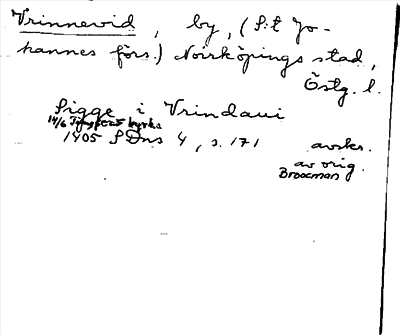 Vrinnevid, by, (S:t Jo-
hannes förs.) Norrköpings stad,
Östg. l.
Sigge i Vrindaui
14/6 kyrka
1405 SDns 4, s. 171 avskr.
av orig.
Broocman